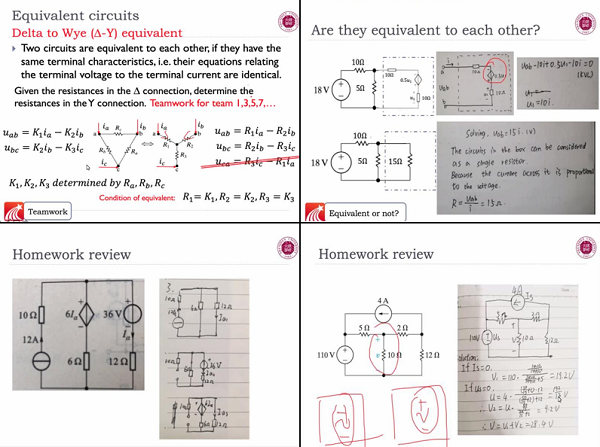 Equivalent circuits
Delta to Wye (Δ-Y) equivalent
Two circuits are equivalent to each other, if they have the
same terminal characteristics, i.e. their equations relating
the terminal voltage to the terminal current are identical.
Given the resistances in the Δ connection, determine the
resistances in the Y connection. Teamwork for team 1,3,5,7,…
u_ab = K₁i_a − K₂i_b
u_bc = K₂i_b − K₃i_c
u_ab = R₁i_a − R₂i_b
u_bc = R₂i_b − R₃i_c
u_ca = R₃i_c − R₁i_a
K₁, K₂, K₃ determined by R_a, R_b, R_c
Condition of equivalent: R₁= K₁, R₂ = K₂, R₃ = K₃
Teamwork
Are they equivalent to each other?
10Ω
18 V
5Ω
10Ω
18 V
5Ω
15Ω
Uab-10i+0.5U₁-10i=0
(KVL)
U₁=10i.
Solving, Uab=15i. (V)
The circuits in the box can be considered
as a single resistor.
Because the current across it is proportional
to the voltage.
R = Uab/i = 15Ω.
Equivalent or not?
Homework review
10Ω
6Iₐ
36 V
Iₐ
12A
6Ω
12Ω
3.
Homework review
4 A
5 Ω
2 Ω
110 V
10 Ω
12 Ω
4A
Is
110V
If Is=0.
If Us=0.